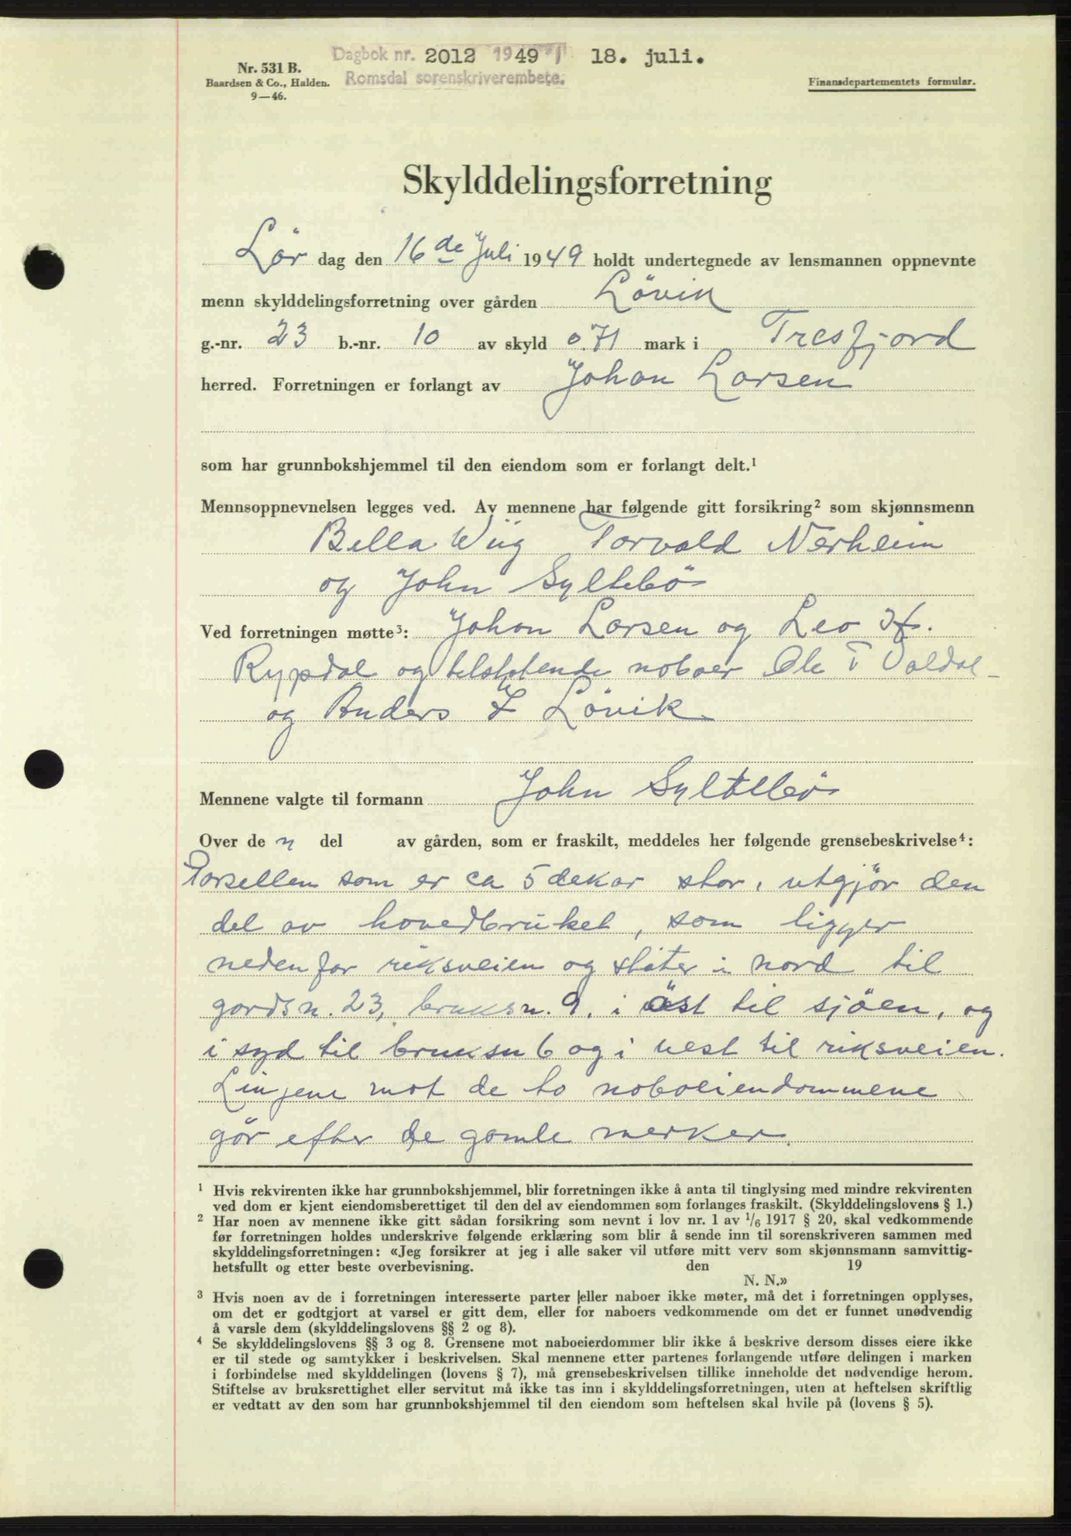 Dagbok nr. 2012 1949 18. juli.
Romsdal sorenskriverembete.
Nr. 531 B.
Baardsen & Co., Halden.
9—46.
Finansdepartementets formular.
Skylddelingsforretning
Lör dag den 16de Juli 1949 holdt undertegnede av lensmannen oppnevnte
menn skylddelingsforretning over gården Lövik
g.-nr. 23 b.-nr. 10 av skyld 0.71 mark i Tresfjord
herred. Forretningen er forlangt av Johan Larsen
som har grunnbokshjemmel til den eiendom som er forlangt delt.¹
Mennsoppnevnelsen legges ved. Av mennene har følgende gitt forsikring² som skjønnsmenn
Bella Wiig Torvald Nerheim
og John Syltebö
Ved forretningen møtte³: Johan Larsen og Leo
Rypdal og tilstötende naboer Ole T Valdal
og Anders L Lövik
Mennene valgte til formann John Syltebö
Over de n del av gården, som er fraskilt, meddeles her følgende grensebeskrivelse⁴:
Parsellen som er ca 5 dekar stor, utgjör den
del av hovedbruket, som ligger
nedenfor riksveien og stöter i nord til
gardsn. 23, bruksn. 9, i öst til sjöen, og
i syd til bruksn 6 og i vest til riksveien.
Linjene mot de to naboeiendommene
går efter de gamle merker.
¹ Hvis rekvirenten ikke har grunnbokshjemmel, blir forretningen ikke å anta til tinglysing med mindre rekvirenten
ved dom er kjent eiendomsberettiget til den del av eiendommen som forlanges fraskilt. (Skylddelingslovens § 1.)
² Har noen av mennene ikke gitt sådan forsikring som nevnt i lov nr. 1 av ¹/₆ 1917 § 20, skal vedkommende
før forretningen holdes underskrive følgende erklæring som blir å sende inn til sorenskriveren sammen med
skylddelingsforretningen: «Jeg forsikrer at jeg i alle saker vil utføre mitt verv som skjønnsmann samvittig-
hetsfullt og etter beste overbevisning. den 19
N. N.»
³ Hvis noen av de i forretningen interesserte parter eller naboer ikke møter, må det i forretningen opplyses,
om det er godtgjort at varsel er gitt dem, eller for naboers vedkommende om det er funnet unødvendig
å varsle dem (skylddelingslovens §§ 2 og 8).
⁴ Se skylddelingslovens §§ 3 og 8. Grensene mot naboeierdommer blir ikke å beskrive dersom disses eiere ikke
er til stede og samtykker i beskrivelsen. Skal mennene etter partenes forlangende utføre delingen i marken
i forbindelse med skylddelingen (lovens § 7), må grensebeskrivelsen tillike inneholde det nødvendige herom.
Stiftelse av bruksrettighet eller servitut må ikke tas inn i skylddelingsforretningen, uten at heftelsen skriftlig
er vedtatt av den som har grunnbokshjemmel til den eiendom som heftelsen skal hvile på (lovens § 5).